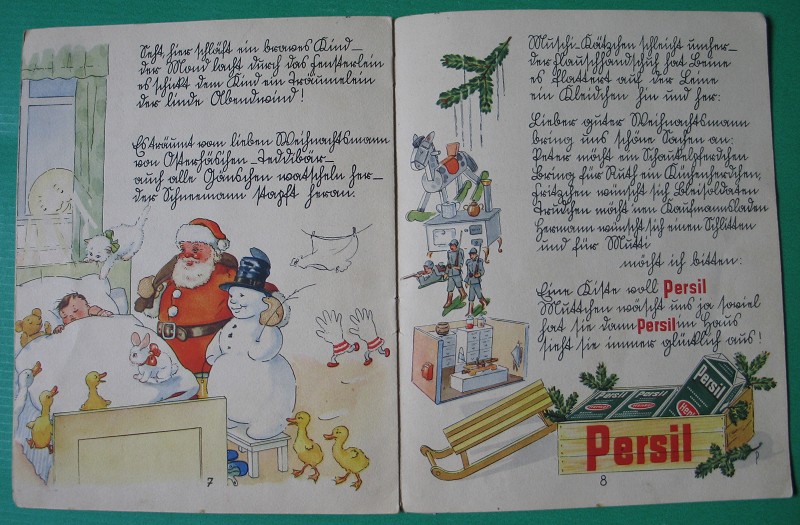 Seht, hier schläft ein braves Kind –
der Mond lacht durch das Fensterlein
es schickt dem Kind ein Träumelein
der linde Abendwind!
Es träumt vom lieben Weihnachtsmann
von Osterhäschen – Teddibär –
auch alle Gänschen watscheln her –
der Schneemann stapft heran.
7
Muschi-Kätzchen schleicht umher –
der Flauschhandschuh hat Beine
es flattert auf der Leine
ein Kleidchen hin und her:
Lieber guter Weihnachtsmann
bring uns schöne Sachen an:
Peter möcht ein Schaukelpferdchen
Bring für Ruth ein Küchenherdchen,
Fritzchen wünscht sich Bleisoldaten
Trudchen möcht nen Kaufmannsladen
Hermann wünscht sich einen Schlitten
und für Mutti
möcht ich bitten:
Eine Kiste voll Persil
Muttchen wäscht uns ja soviel
hat sie dann Persil im Haus
sieht sie immer glücklich aus!
Persil
Persil
Persil
Henkel
Henkel
Henkel
Persil
8